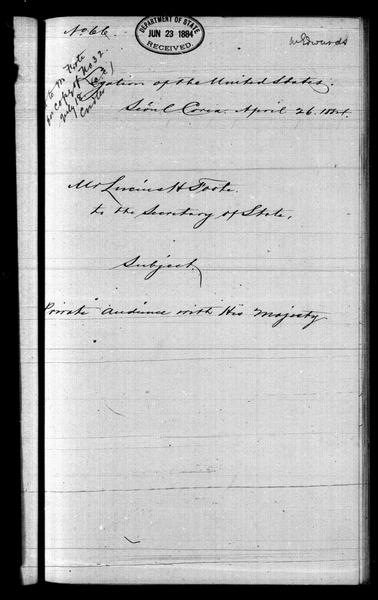 No 66.
DEPARTMENT OF STATE
JUN 23 1884
RECEIVED.
McEdwards
to Mr Foote
for copy of No 32
July 18
Legation of the United States.
Séoul Corea. April 26. 1884.
Mr Lucius H Foote.
to the Secretary of State.
Subject.
Private Audience with His Majesty